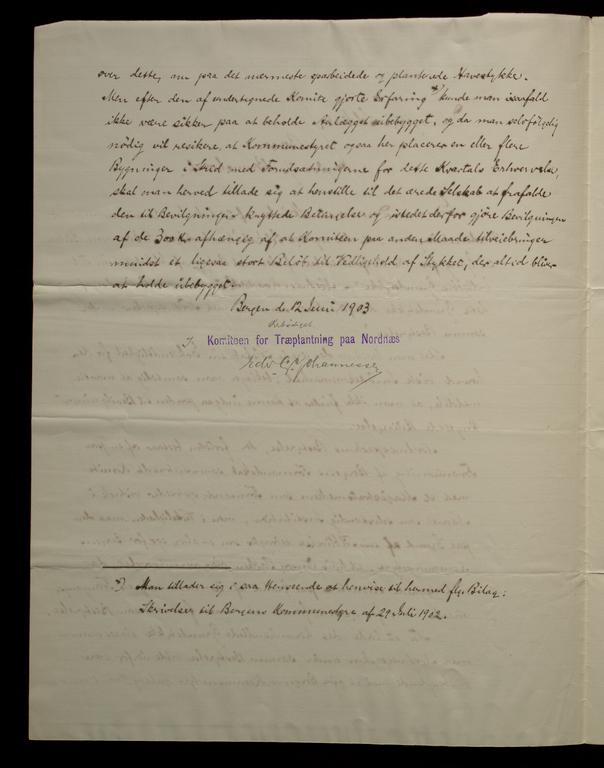 over dette, nu paa det nærmeste oparbeidede og plantede Havestykke.
Men efter den af undertegnede Komite gjorte Erfaring *) kunde man isaafald
ikke være sikker paa at beholde Anlægget ubebygget, og da man selvfølgelig
nødig vil resikere, at Kommunestyret ogsaa her placerer en eller flere
Bygninger i Strid med Forudsætningerne for dette Kvartals Erhvervelse,
skal man herved tillade sig at henstille til det ærede Selskab at frafalde
den til Bevilgningen knyttede Betingelse og istedetfor gjøre Bevilgningen
af de 300 k. afhængig af, at Komiteen paa anden Maade tilveiebringer
mindst et ligesaa stort Beløb til Vedligehold af Stykket, der altid bliver
at holde ubebygget.
Bergen d. 12 Juni 1903
Ærbødigst
Komiteen for Træplantning paa Nordnæs
Johannessen
*) Man tillader sig i saa Henseende at henvise til hermed flg. Bilag:
Skrivelse til Bergens Kommunestyre af 29 Juli 1902.